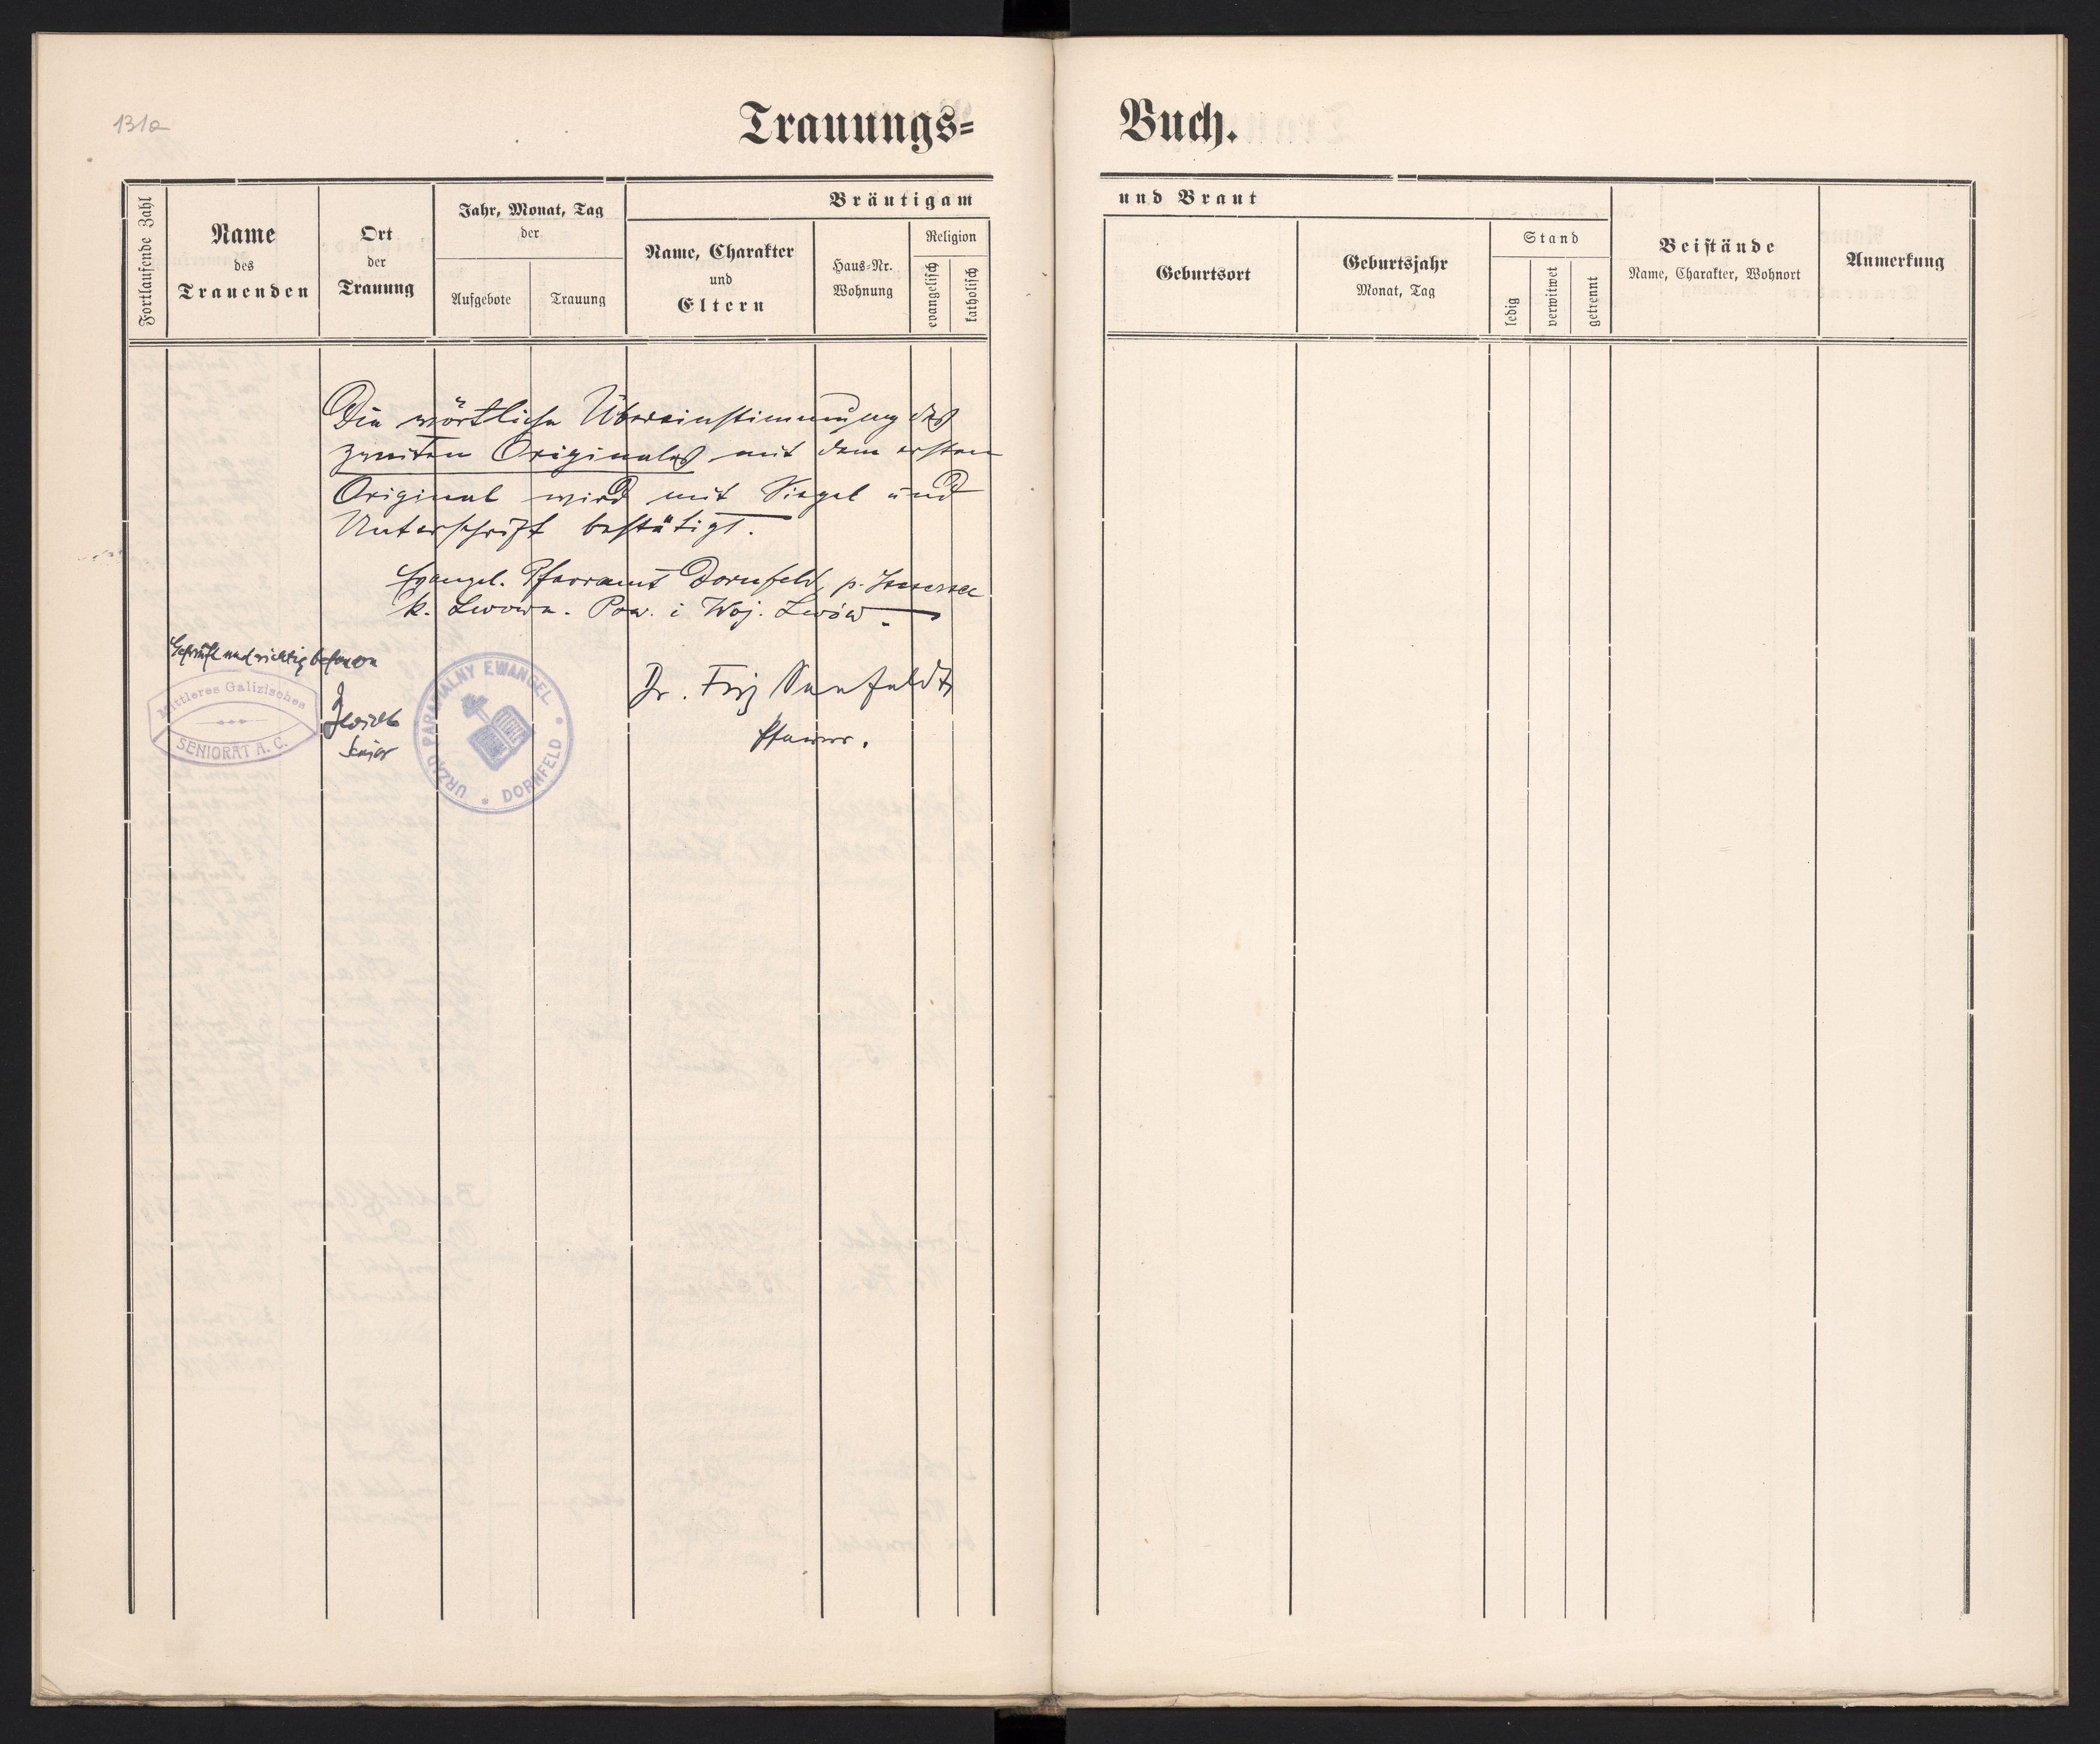 131a
Trauungs=
Buch.
Fortlaufende Zahl
Name
des
Trauenden
Ort
der
Trauung
Jahr, Monat, Tag
der
Aufgebote
Trauung
Bräutigam
Name, Charakter
und
Eltern
Haus=Nr.
Wohnung
Religion
evangelisch
katholisch
und Braut
Geburtsort
Geburtsjahr
Monat, Tag
Stand
ledig
verwitwet
getrennt
Beistände
Name, Charakter, Wohnort
Anmerkung
Die wörtliche Übereinstimmung des
zweiten Originales mit dem ersten
Original wird mit Siegel und
Unterschrift bestätigt.
Evangel. Pfarramt Dornfeld, p.
k. Lwowa. Pow. i Woj. Lwów.
Geprüft und richtig befunden
Mittleres Galizisches
SENIORAT A. C.
Senior
URZĄD PARAFIALNY EWANGEL.
DORNFELD
Dr. Fritz Seefeldt
Pfarrer.